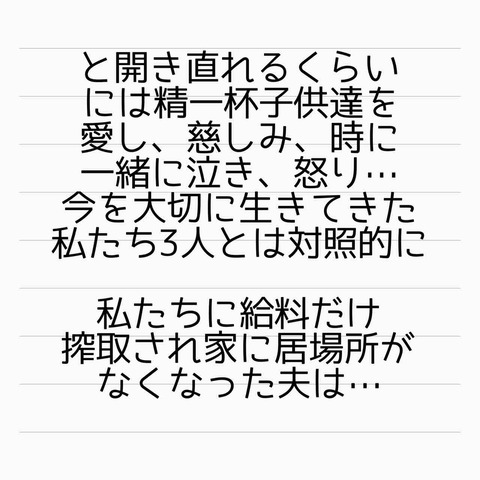 と開き直れるくらい
には精一杯子供達を
愛し、慈しみ、時に
一緒に泣き、怒り…
今を大切に生きてきた
私たち3人とは対照的に
私たちに給料だけ
搾取され家に居場所が
なくなった夫は…